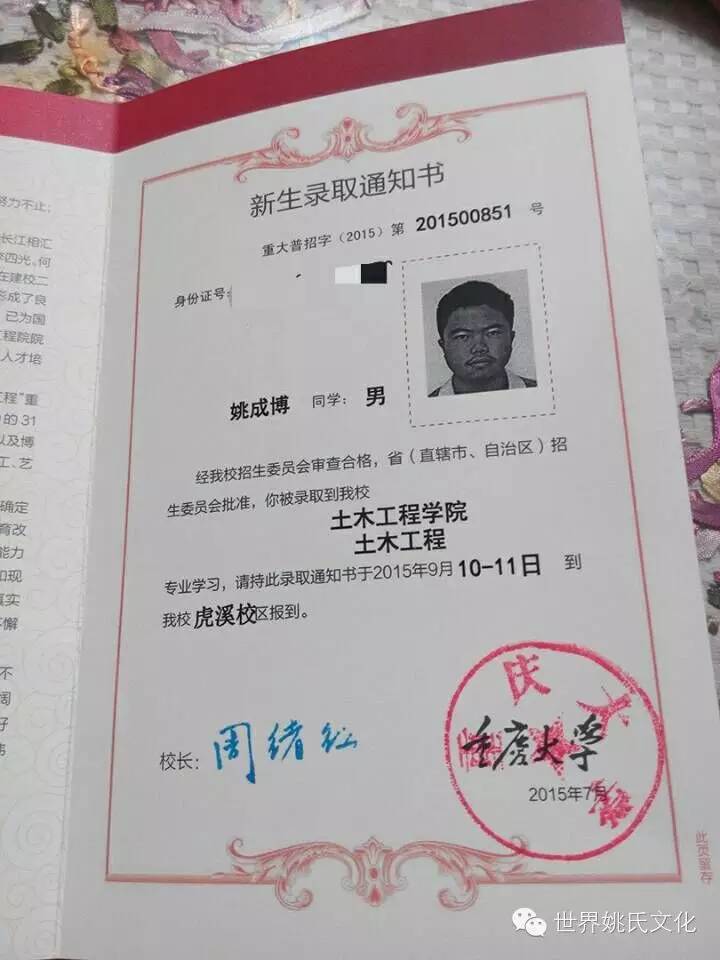 努力不止；
长江相汇
李四光、何
在建校二
形成了良
已为国
工程院院
人才培
工程"重
的 31
以及博
工、艺
确定
育改
能力
和现
真实
不懈
不
阔
好
伟
新生录取通知书
重大普招字（2015）第 201500851 号
身份证号:
姚成博 同学： 男
经我校招生委员会审查合格，省（直辖市、自治区）招
生委员会批准，你被录取到我校
土木工程学院
土木工程
专业学习，请持此录取通知书于2015年9月 10-11日 到
我校 虎溪校区报到。
校长： 周绪红
重庆大学
重庆大学
2015年7月
此页留存
世界姚氏文化